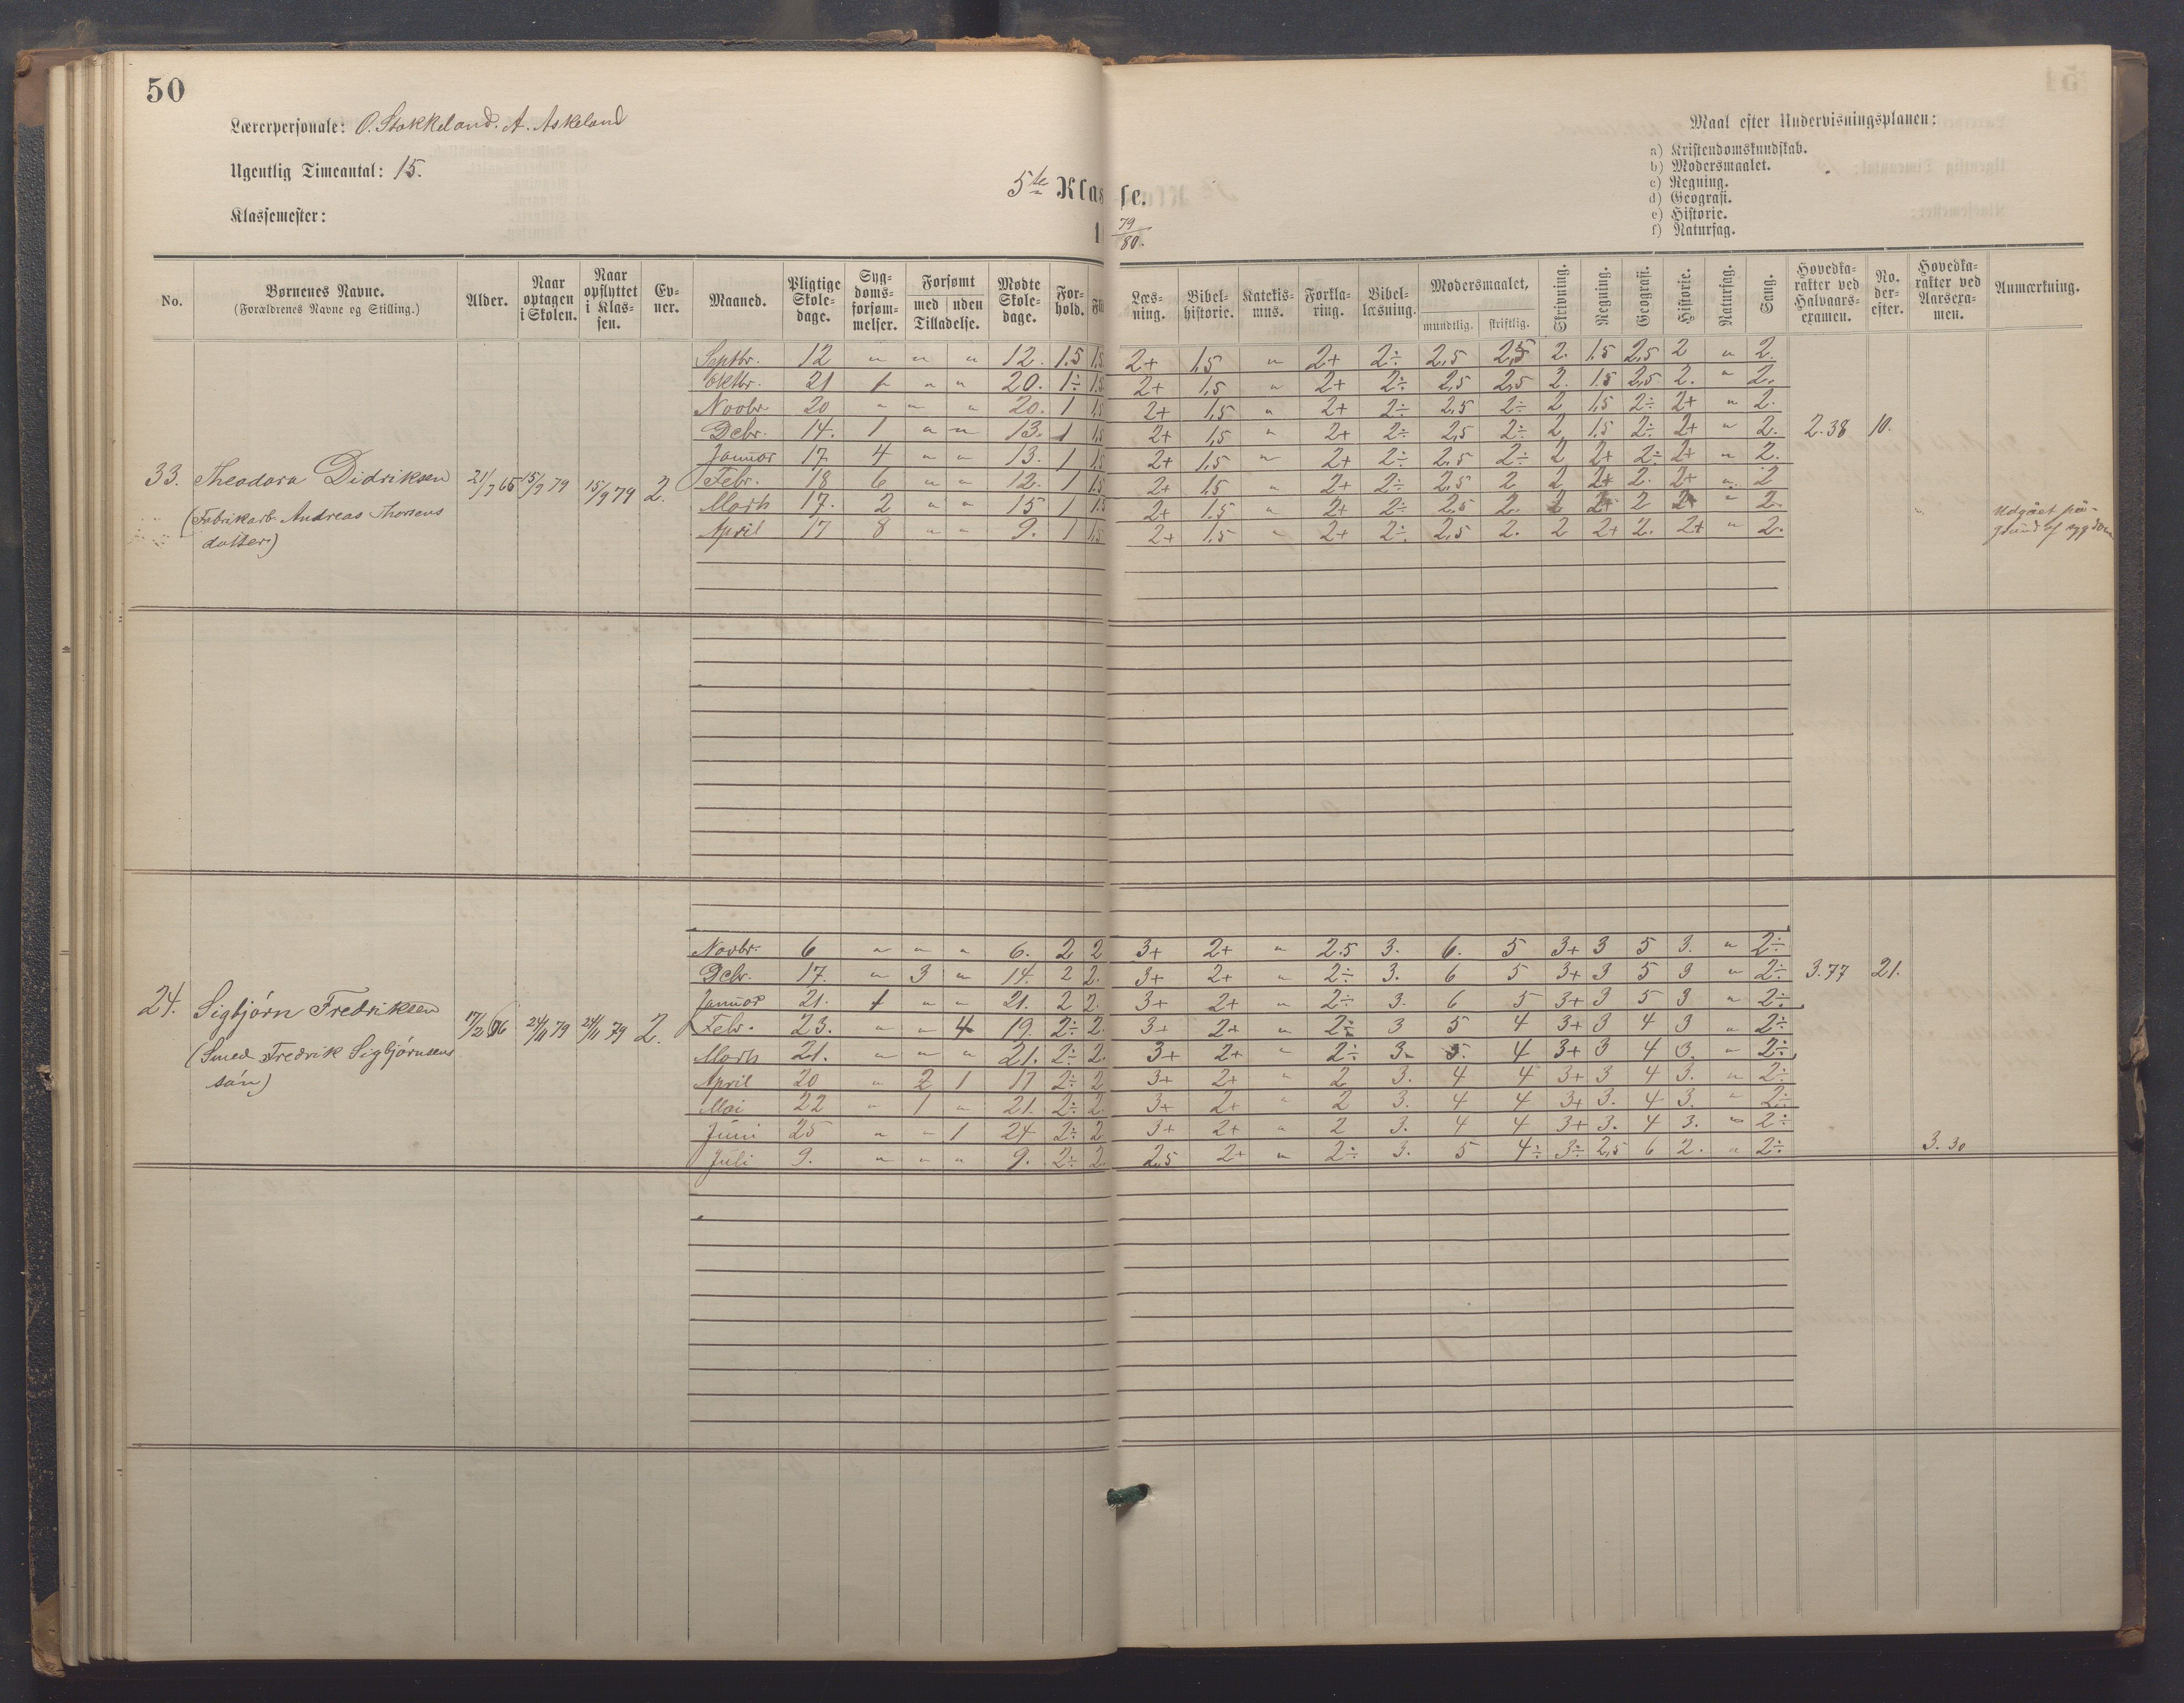 50
Lærerpersonale: O. Stokkeland. A. Askeland
Ugentlig Timeantal: 15.
Klassemester:
5te Klasse.
1 79/80.
Maal efter Undervisningsplanen:
a) Kristendomskundskab.
b) Modersmaalet.
c) Regning.
d) Geografi.
e) Historie.
f) Naturfag.
No. Børnenes Navne. (Forældrenes Navne og Stilling.) Alder. Naar optagen i Skolen. Naar opflyttet i Klassen. Evner. Maaned. Pligtige Skoledage. Sygdomsforsømmelser. Forsømt med uden Tilladelse. Mødte Skoledage. Forhold. Fl Læsning. Bibelhistorie. Katekismus. Forklaring. Bibellæsning. Modersmaalet, mundtlig. skriftlig. Skrivning. Regning. Geografi. Historie. Naturfag. Sang. Hovedkarakter ved Halvaarsexamen. No. derefter. Hovedkarakter ved Aarsexamen. Anmærkning.
Septbr. 12 " " " 12. 1.5 1,5 2+ 1,5 " 2+ 2÷ 2,5 2,5 2. 1.5 2,5 2 " 2.
Oktbr. 21 1 " " 20. 1÷ 1.5 2+ 1,5 " 2+ 2÷ 2,5 2,5 2. 1.5 2,5 2. " 2.
Novbr. 20 " " " 20. 1 1,5 2+ 1,5 " 2+ 2÷ 2,5 2÷ 2 1,5 2÷ 2+ " 2.
Debr. 14. 1 " " 13. 1 1,5 2+ 1,5 " 2+ 2÷ 2,5 2÷ 2 1,5 2÷ 2+ " 2. 2.38 10.
Januar 17 4 " " 13. 1 1,5 2+ 1,5 " 2+ 2÷ 2,5 2÷ 2 2+ 2÷ 2+ " 2.
33. Theodora Didriksen 21/7 65 15/9 79 15/9 79 2. Febr. 18 6 " " 12. 1 1.5 2+ 1,5 " 2+ 2÷ 2,5 2 2 2+ 2. 2+ " 2
(Fabrikarb. Andreas Thorsens Marts 17. 2 " " 15 1 1.5 2+ 1.5 " 2+ 2÷ 2,5 2. 2 2+ 2 2+ " 2. Udgået på
datter) April 17 8 " " 9. 1 1,5 2+ 1.5 " 2+ 2÷ 2,5 2. 2 2+ 2. 2+ " 2. grund af sygdom
Novbr. 6 " " " 6. 2 2 3+ 2+ " 2.5 3. 6. 5 3+ 3 5 3. " 2÷
Debr. 17. " 3 " 14. 2 2. 3+ 2+ " 2÷ 3. 6 5 3+ 3 5 3 " 2÷ 3.77 21.
24. Sigbjørn Fredriksen Januar 21. 1 " " 21. 2 2. 3+ 2+ " 2÷ 3. 6 5 3+ 3 5 3 " 2÷
24/11 79 24/11 79 2. Febr. 23. " " 4 19. 2÷ 2. 3+ 2+ " 2÷ 3 5 4 3+ 3 4 3 " 2÷
(Smed Fredrik Sigbjørnsens Marts 21. " " " 21. 2÷ 2. 3+ 2+ " 2÷ 3. 5. 4 3+ 3 4 3. " 2÷
søn) April 20 " 2 1 17 2÷ 2 3+ 2+ " 2 3. 4 4 3+ 3 4 3. " 2÷
Mai 22 " 1 " 21. 2÷ 2. 3+ 2+ " 2 3. 4 4 3+ 3. 4 3. " 2÷
Juni 25 " " 1 24 2÷ 2 3+ 2+ " 2 3. 4 4 3+ 3. 4 3. " 2÷
Juli 9. " " " 9. 2÷ 2. 2,5 2+ " 2÷ 3. 5 4÷ 3÷ 2,5 6 2. " 2÷ 3.30